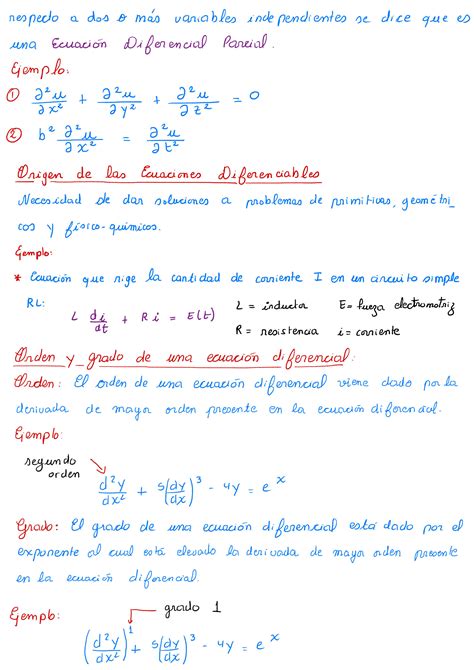 respecto a dos o más variables independientes se dice que es
una Ecuación Diferencial Parcial.
Ejemplo:
① ∂²u/∂x² + ∂²u/∂y² + ∂²u/∂z² = 0
② b² ∂²u/∂x² = ∂²u/∂t²
Origen de las Ecuaciones Diferenciables
Necesidad de dar soluciones a problemas de primitivas, geométri_
cos y físico-químicos.
Ejemplo:
* Ecuación que rige la cantidad de corriente I en un circuito simple
RL: L di/dt + Ri = E(t) L = inductor E = fuerza electromotriz
R = resistencia i = corriente
Orden y grado de una ecuación diferencial:
Orden: El orden de una ecuación diferencial viene dado por la
derivada de mayor orden presente en la ecuación diferencial.
Ejemplo:
segundo
orden
d²y/dx² + 5(dy/dx)³ - 4y = e^x
Grado: El grado de una ecuación diferencial está dado por el
exponente al cual está elevado la derivada de mayor orden presente
en la ecuación diferencial.
Ejemplo: grado 1
(d²y/dx²)¹ + 5(dy/dx)³ - 4y = e^x